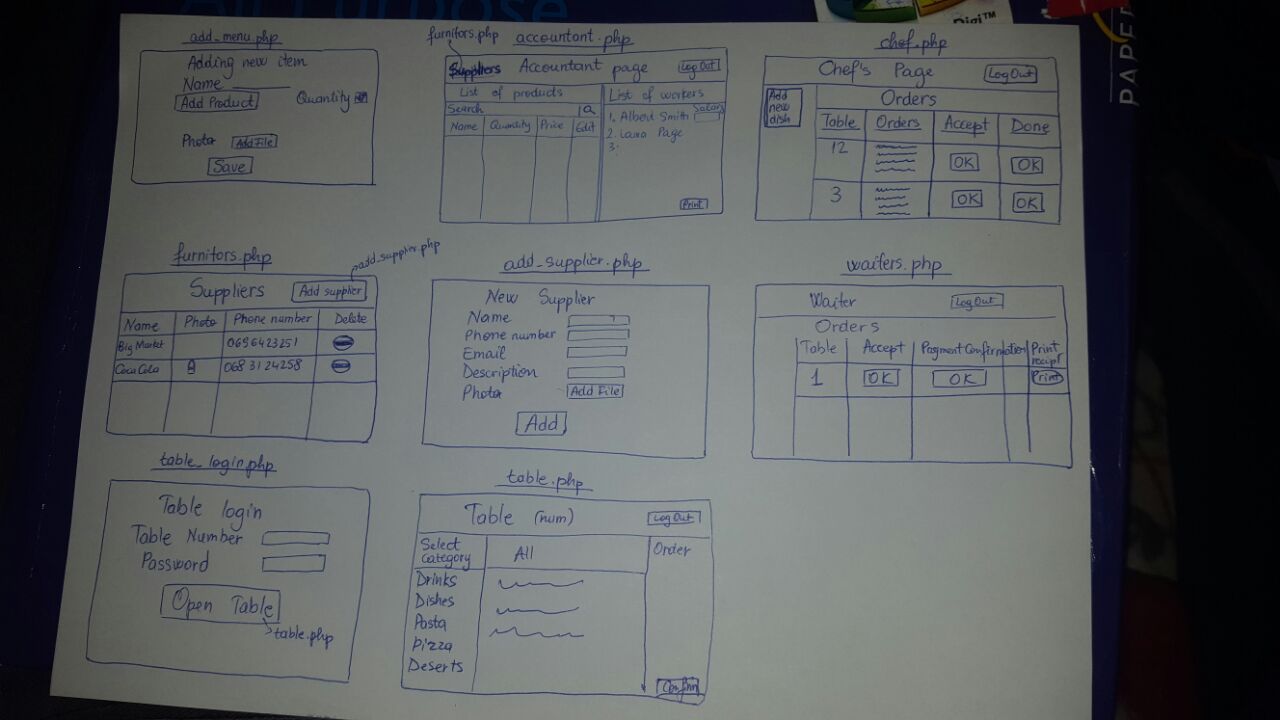 All Purpose
Digi™
PAPER
add_menu.php
Adding new item
Name
Add Product
Quantity
Photo Add File
Save
furnitors.php
accountant.php
Suppliers Accountant page Log Out
List of products
Search
Name Quantity Price Edit
List of workers
Salary
1. Albert Smith
2. Laura Page
3.
Print
chef.php
Chef's Page Log Out
Add
new
dish
Orders
Table Orders Accept Done
12 OK OK
3 OK OK
furnitors.php
add_supplier.php
Suppliers Add supplier
Name Photo Phone number Delete
Big Market 0696423251
Coca Cola 068 31 24258
add_supplier.php
New Supplier
Name
Phone number
Email
Description
Photo Add File
Add
waiters.php
Waiter Log Out
Orders
Table Accept Payment Confirmation Print
recipt
1 OK OK Print
table_login.php
Table login
Table Number
Password
Open Table
table.php
table.php
Table (num) Log Out
Select
category
All
Order
Drinks
Dishes
Pasta
Pizza
Deserts
Confirm